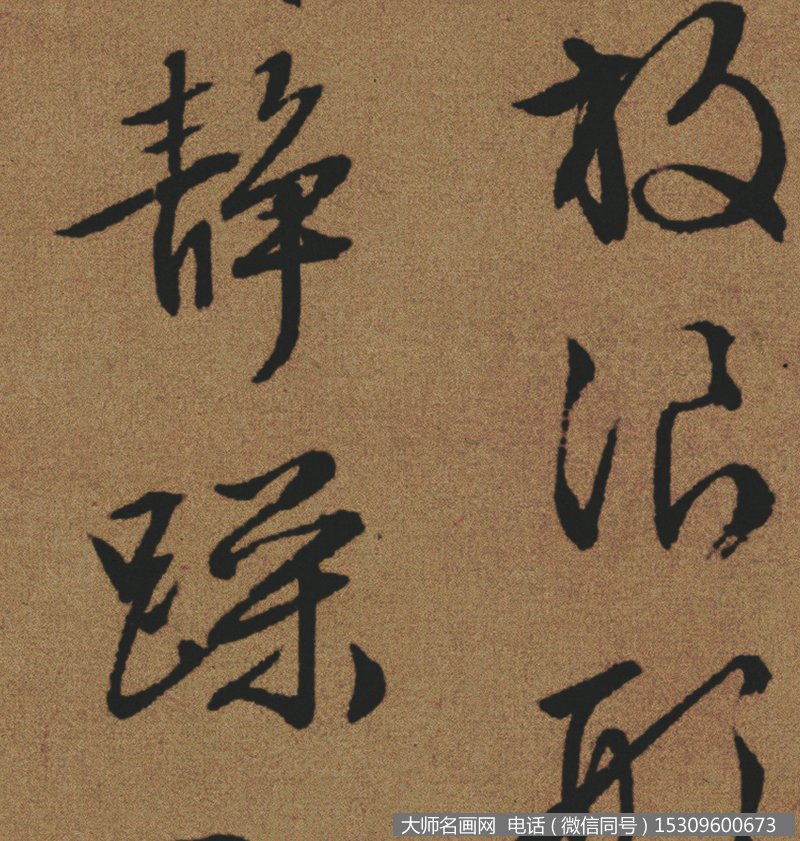 放浪形
静躁
大师名画网 电话(微信同号)15309600673